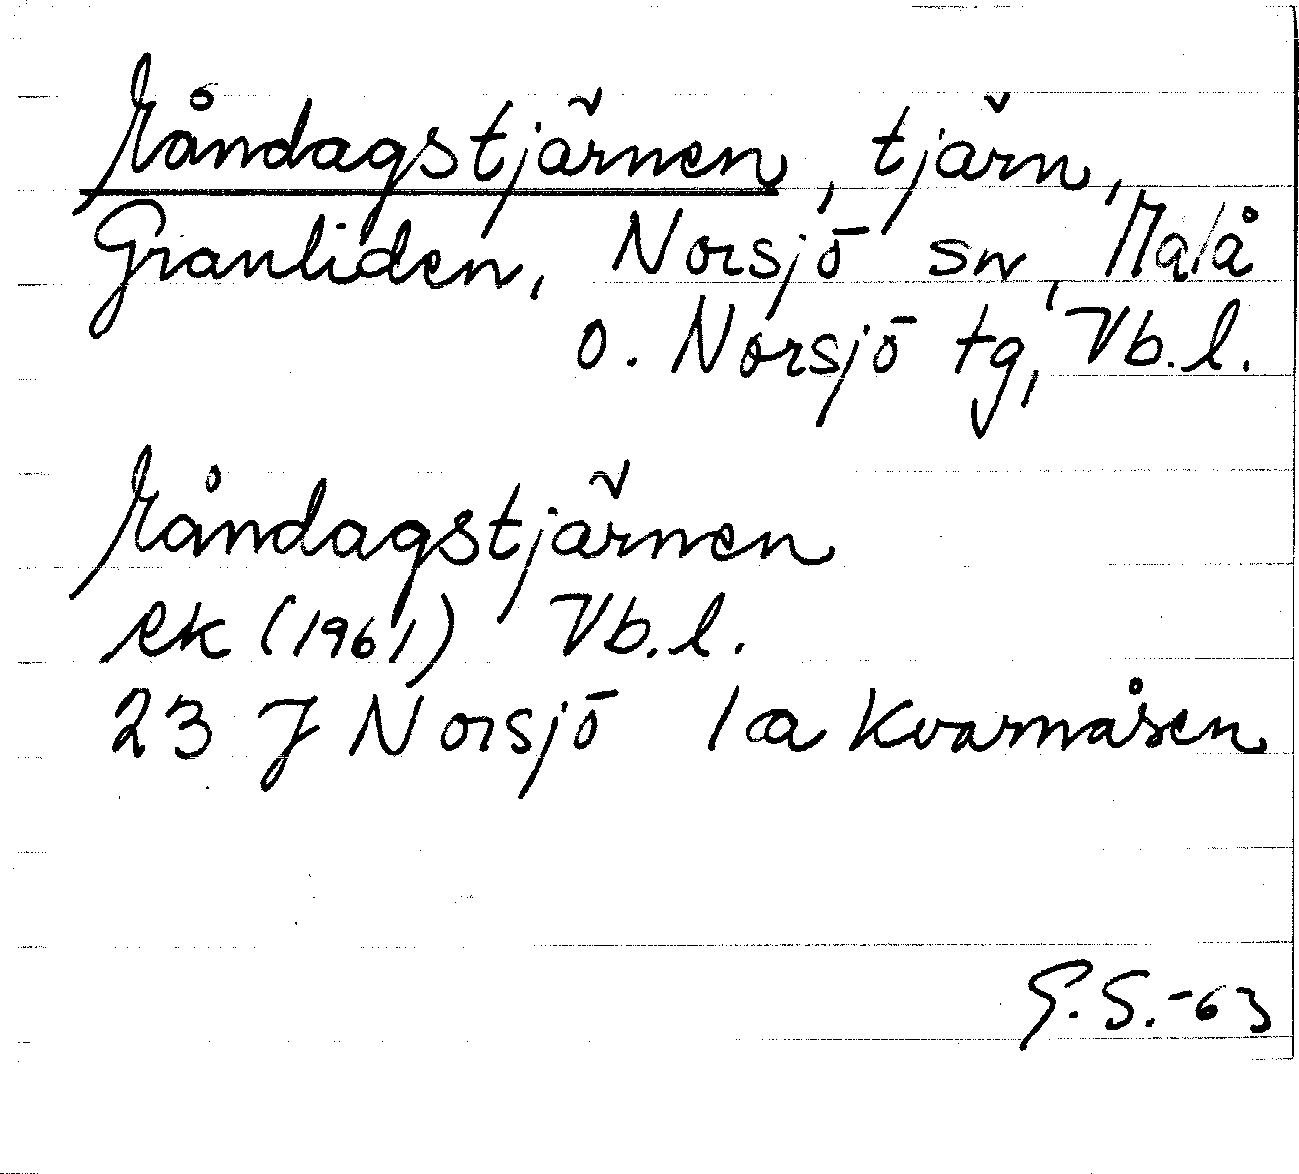 Måndagstjärnen, tjärn,
Granliden, Norsjö sn, Malå
o. Norsjö tg, Vb.l.
Måndagstjärnen
ek (1961) Vb.l.
23 J Norsjö 1a Kvarnåsen
G.S.-63